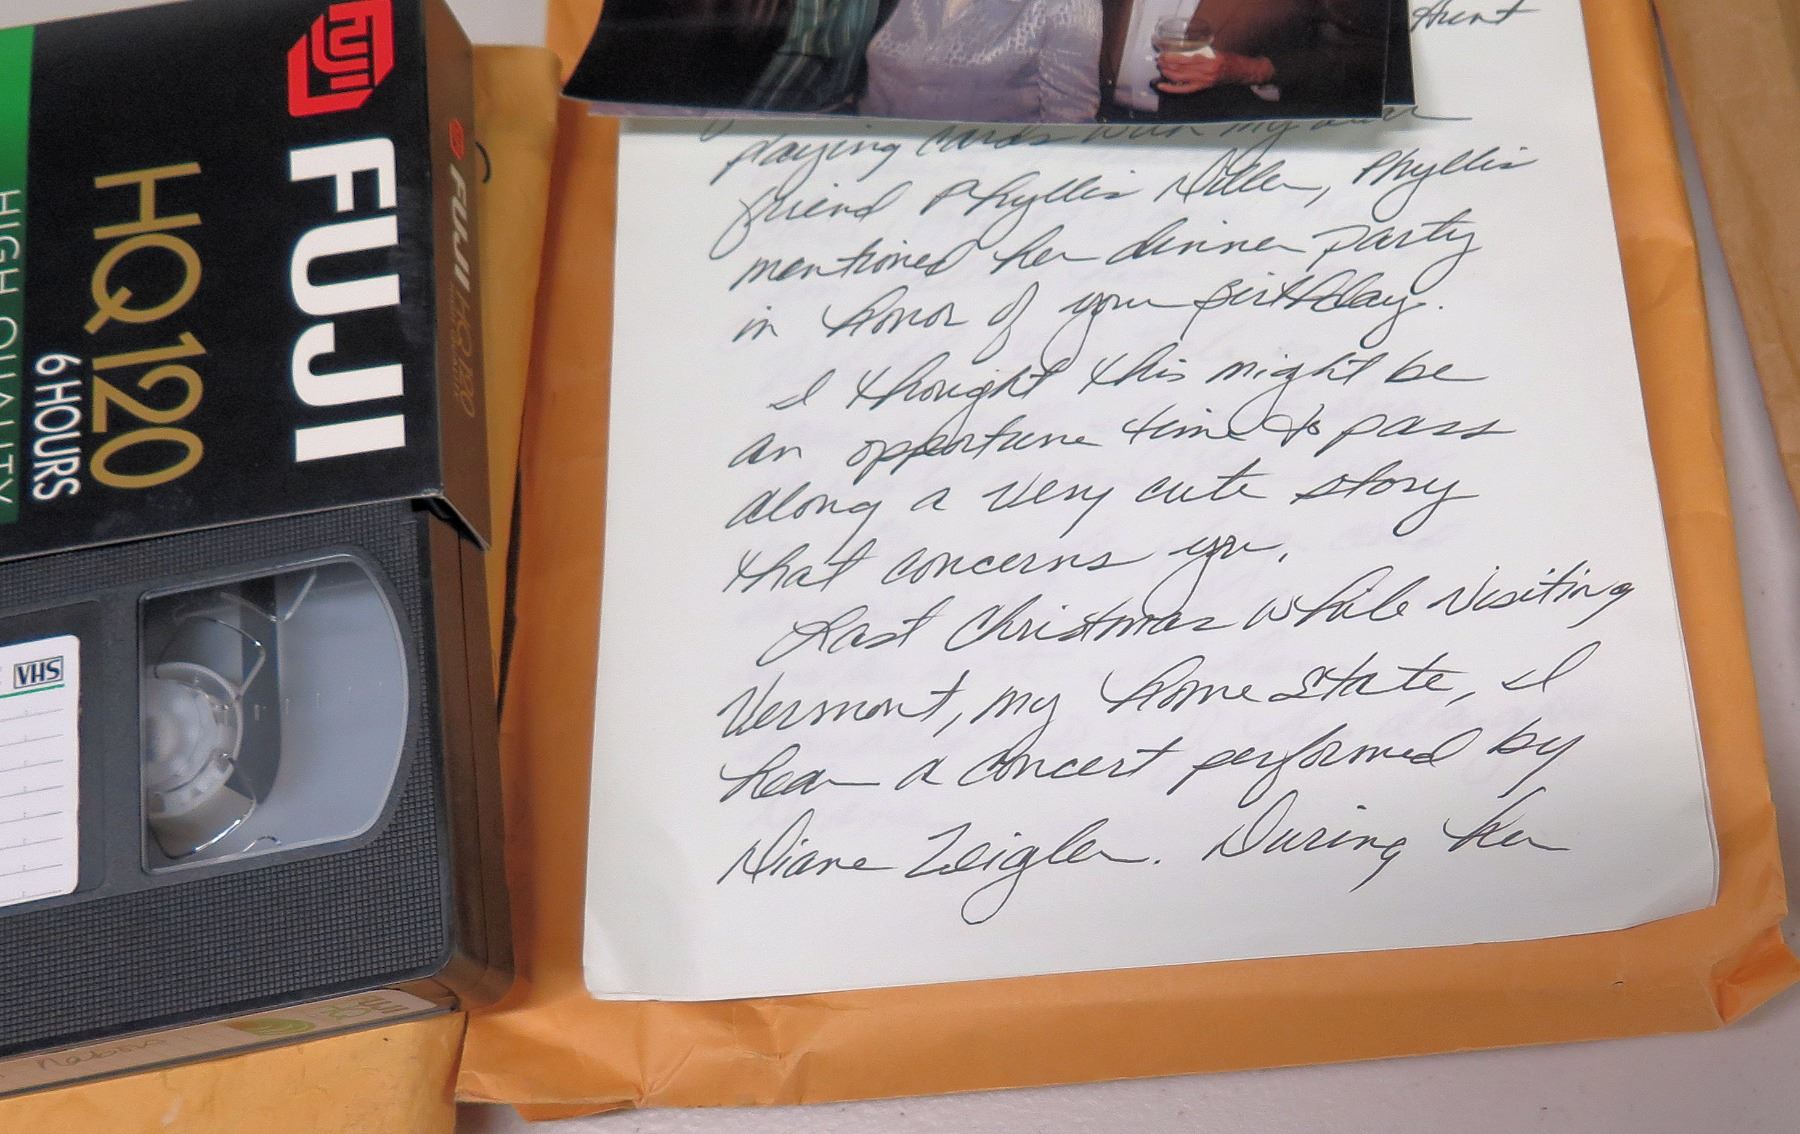 FUJI
FUJI
HQ120
6 HOURS
HIGH QUALITY
FUJI HQ120
VHS
Hunt
playing cards with my dear
friend Phyllis Diller, Phyllis
mentioned her dinner party
in honor of your Birthday.
I thought this might be
an opportune time to pass
along a very cute story
that concerns you.
Last Christmas while visiting
Vermont, my home state, I
hear a concert performed by
Diane Zeigler. During her